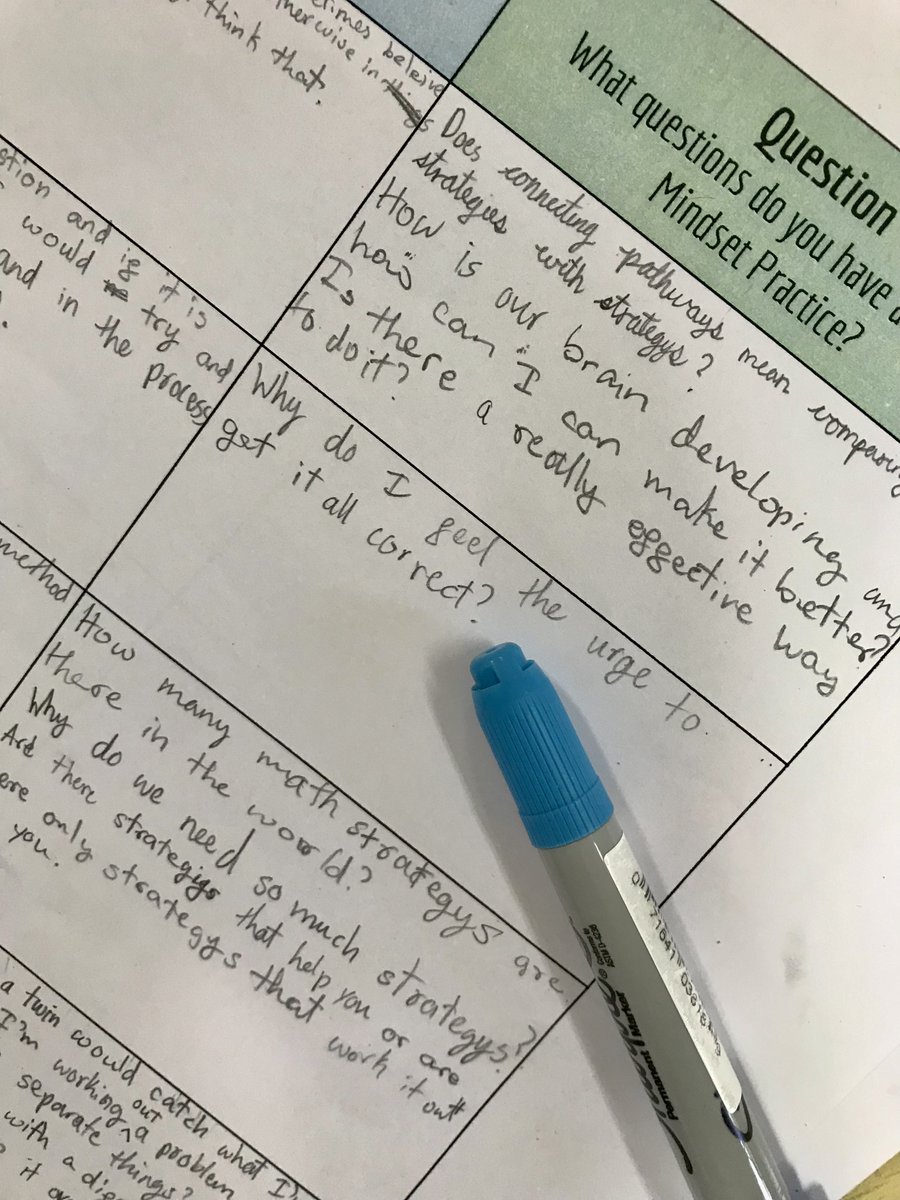 Question
What questions do you have a
Mindset Practice?
etimes beleive
herwise in things
think that.
Does connecting pathways mean comparing
strategies with strategys?
How is our brain developing and
how can I can make it better?
Is there a really effective way
to do it?
stion and if it is
would try and
and in the
process
Why do I feel the urge to
get it all correct?
method
How many math strategys are
there in the world?
Why do we need so much strategys?
Are there strategies that help you or are
ere only strategys that work it out
you.
a twin would catch what I
I'm working out a problem
separate things?
with a
it
Permanent Marker